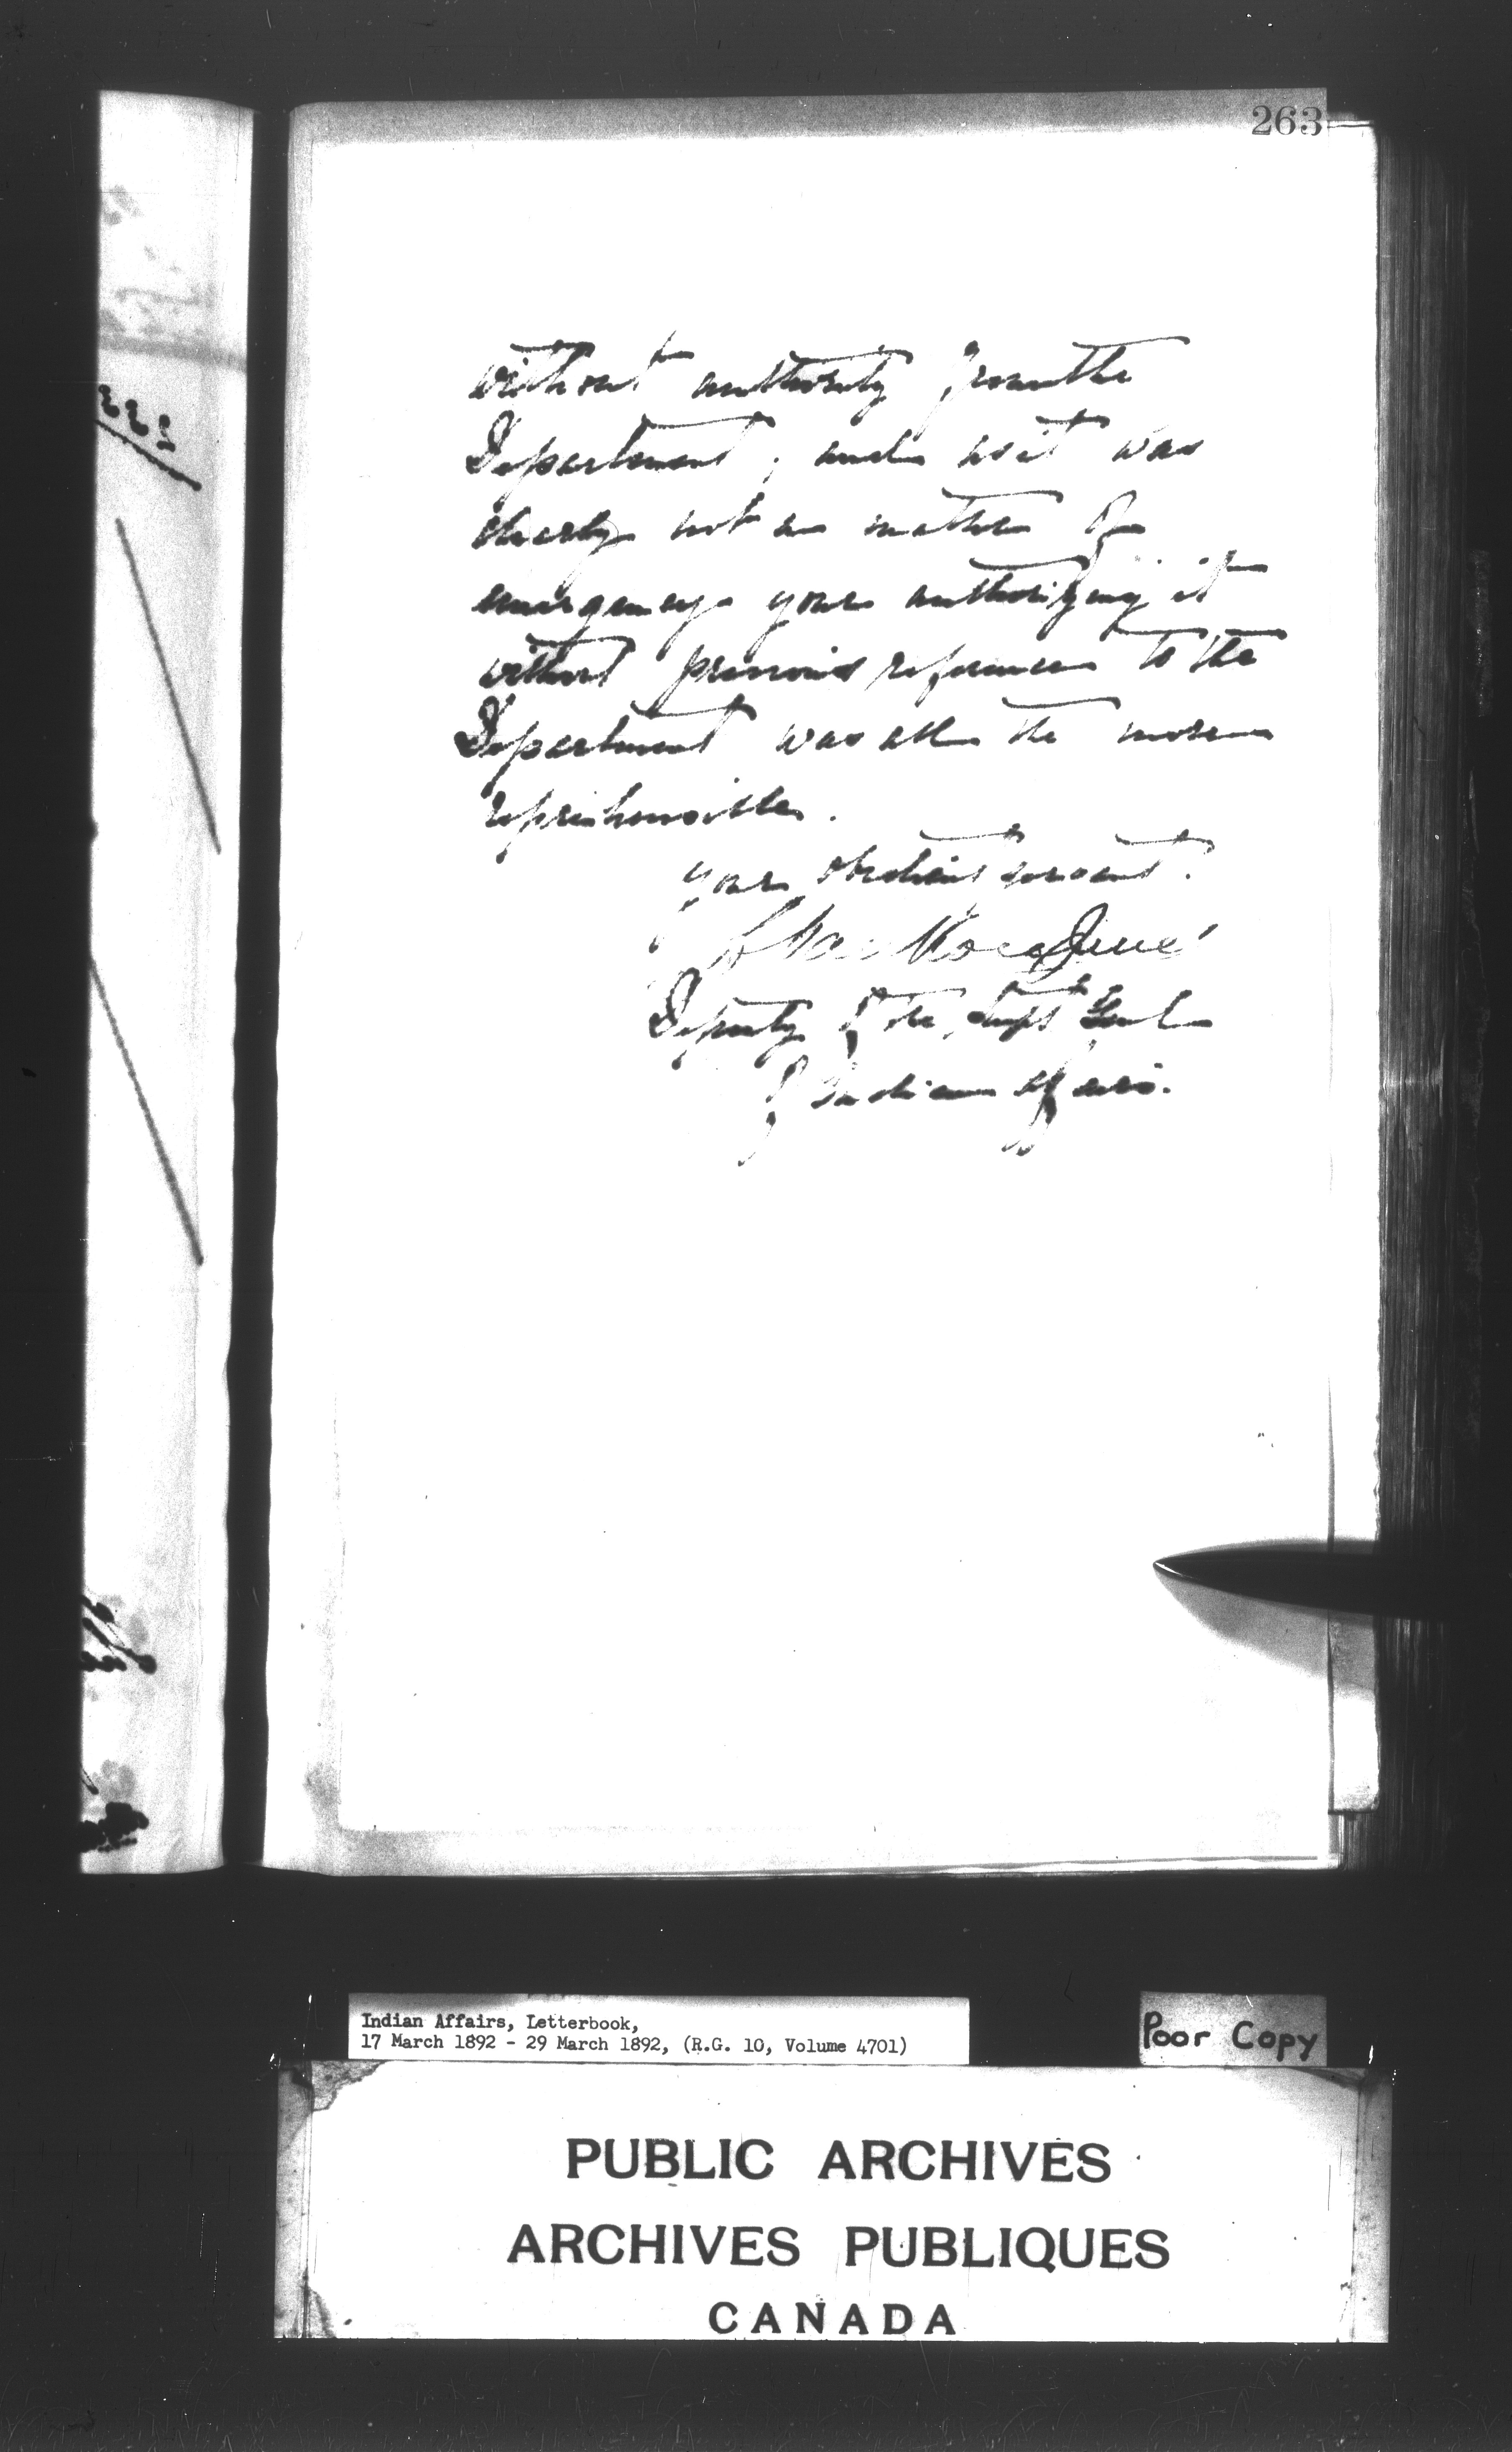 263
without authority from the
Department; and as it was
clearly not a matter of
emergency your authorizing it
without previous reference to the
Department was all the more
reprehensible.
your obedient servant.
Deputy of the Supt Genl
of Indian Affairs.
Indian Affairs, Letterbook,
17 March 1892 - 29 March 1892, (R.G. 10, Volume 4701)
Poor Copy
PUBLIC ARCHIVES
ARCHIVES PUBLIQUES
CANADA